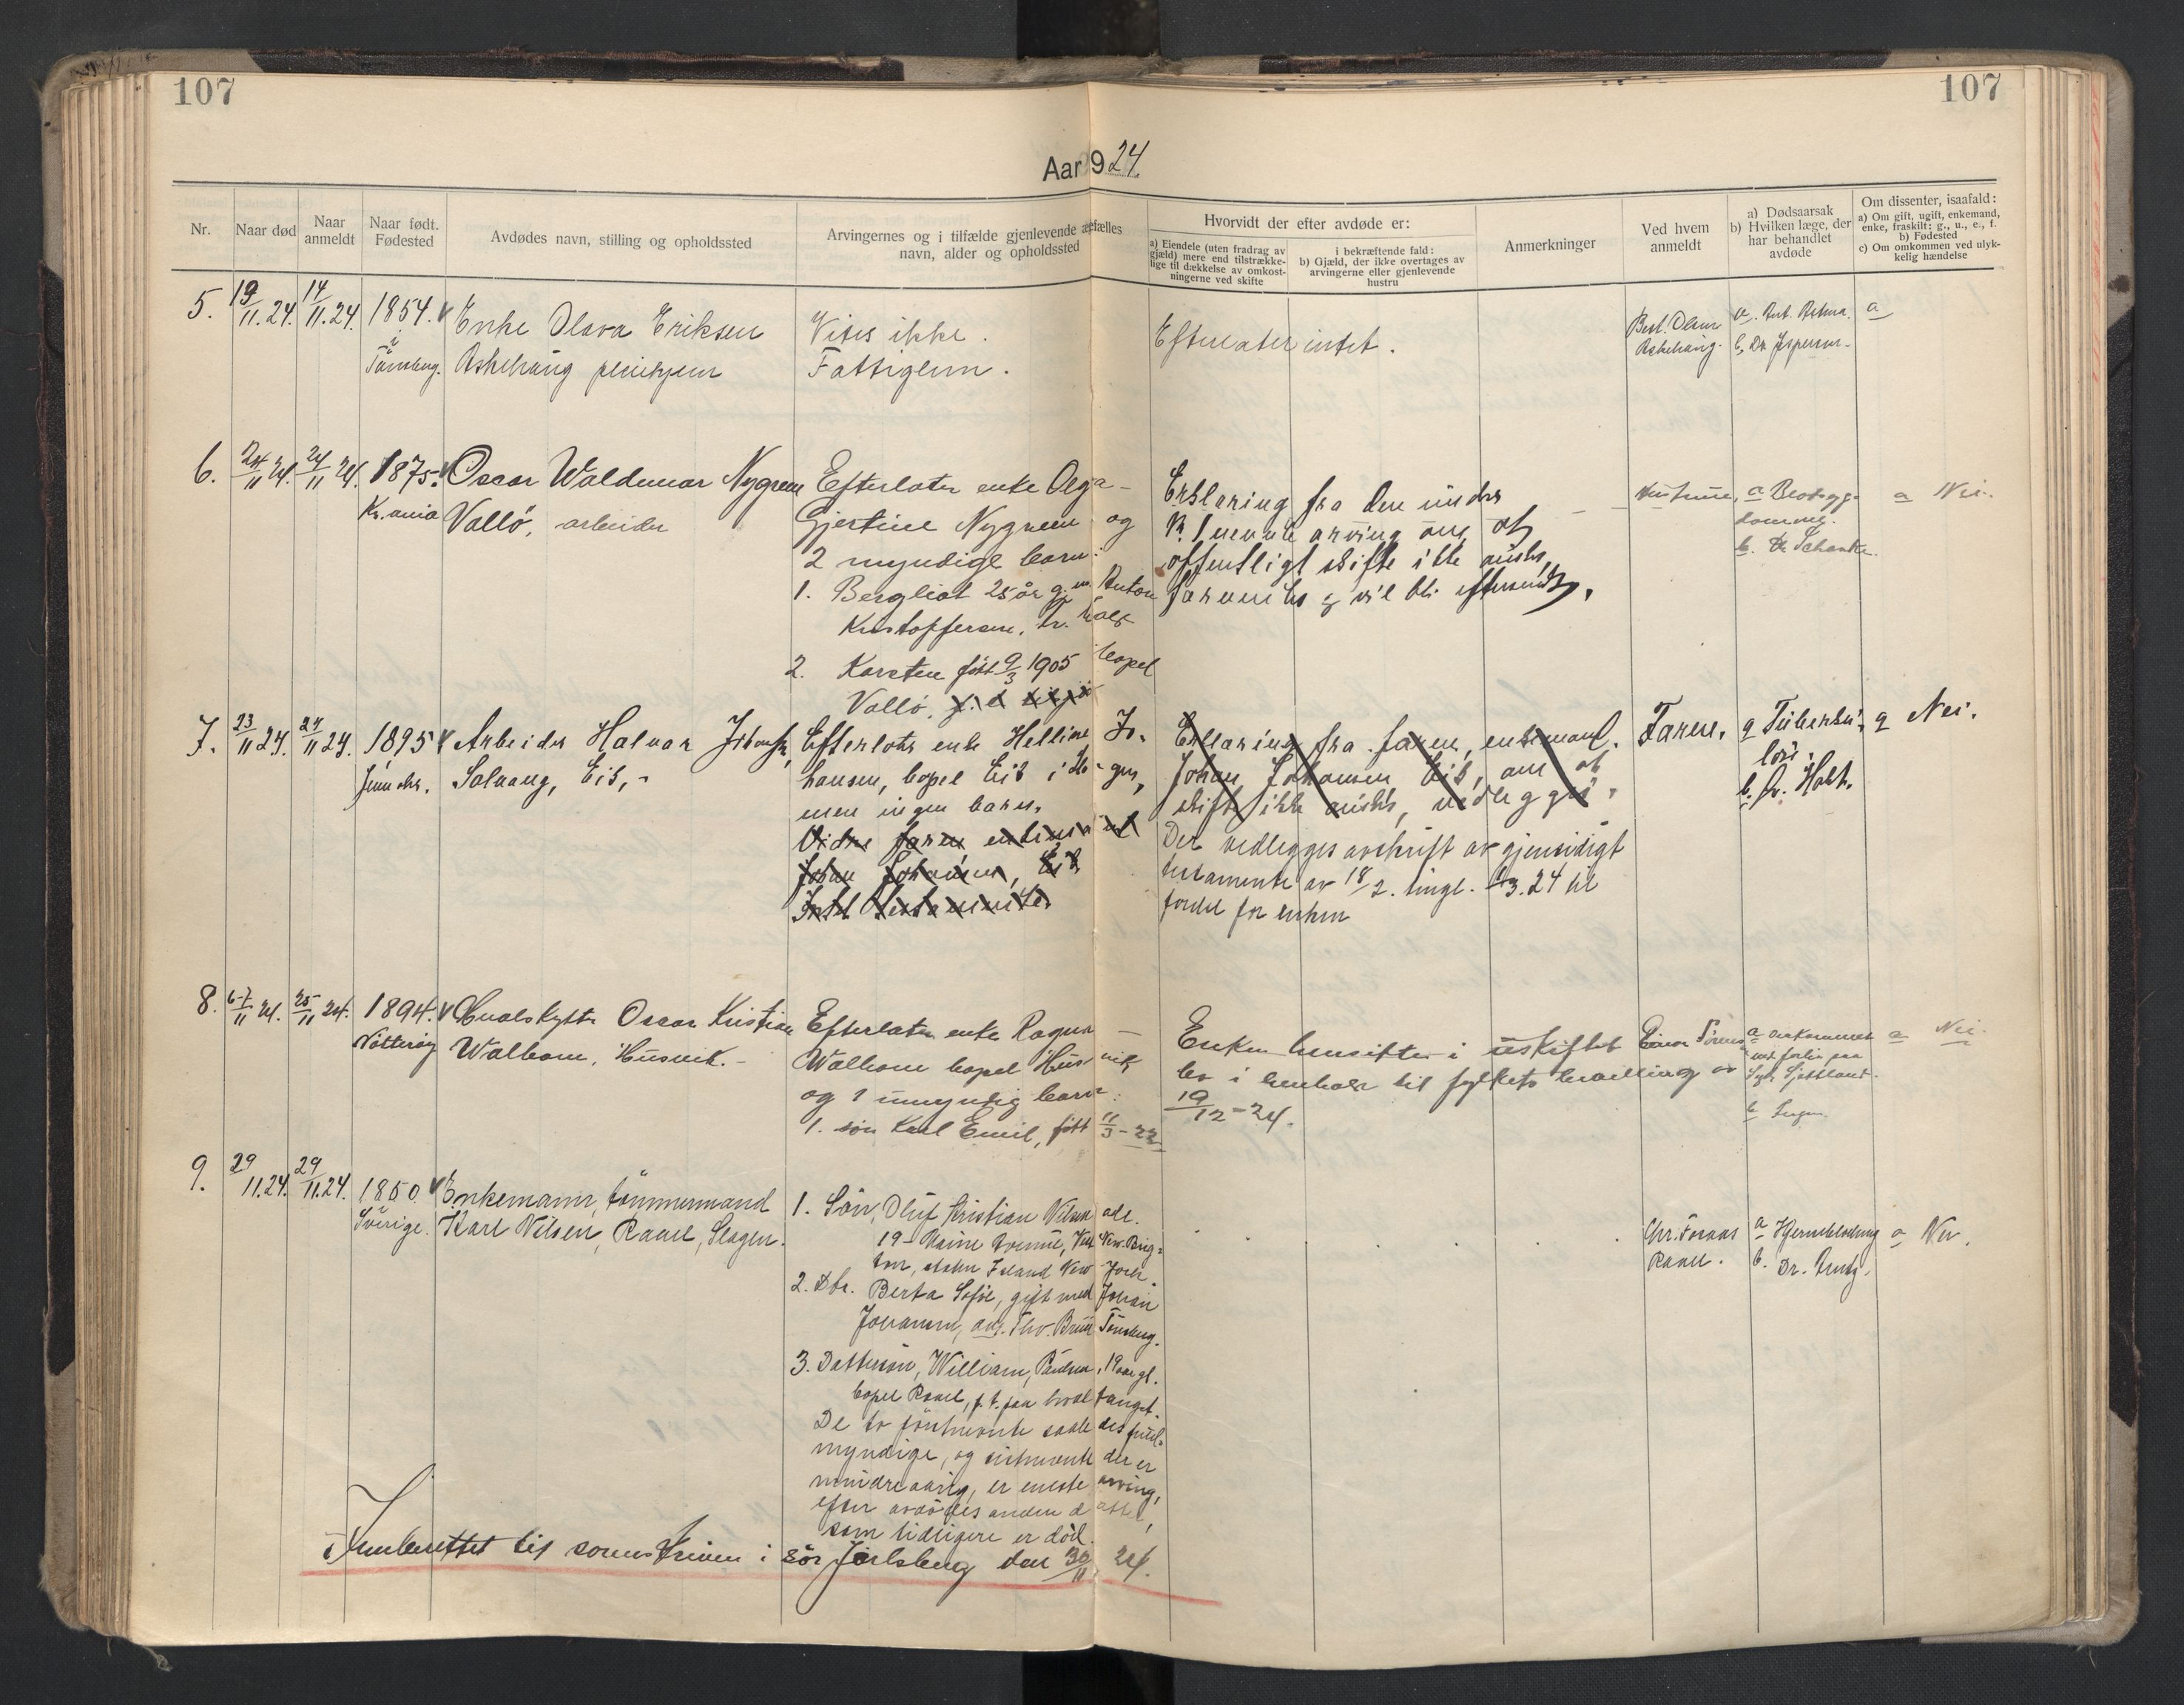 107
107
Aar 1924.
Nr.
Naar død
Naar anmeldt
Naar født. Fødested
Avdødes navn, stilling og opholdssted
Arvingernes og i tilfælde gjenlevende ægtefælles navn, alder og opholdssted
Hvorvidt der efter avdøde er:
a) Eiendele (uten fradrag av gjæld) mere end tilstrækkelige til dækkelse av omkostningerne ved skifte
i bekræftende fald:
b) Gjæld, der ikke overtages av arvingerne eller gjenlevende hustru
Anmerkninger
Ved hvem anmeldt
a) Dødsaarsak
b) Hvilken læge, der har behandlet avdøde
Om dissenter, isaafald:
a) Om gift, ugift, enkemand, enke, fraskilt: g., u., e., f.
b) Fødested
c) Om omkommen ved ulykkelig hændelse
5.
11.24.
14/11.24.
1854.
i
Tønsberg.
Enke Olava Eriksen
Askehaug pleiehjem
Vites ikke.
Fattiglem.
Efterlater intet.
Askehaug.
b, Dr. Jespersen
a
6.
24/11 24.
24/11 24.
1875.
Kr.ania
Oscar Waldemar Nygren
Vallö, arbeider
Efterlater enke Olga
Gjertine Nygreen og
2 myndige barn:
1. Bergliot 25 år g. m. Anton
Kristoffersen,
2. Karsten født 9/3 1905 bopel
Vallö.
Erklæring fra den
arving om at
offentligt skifte ikke ønskes,
vil bli eftersendt.
Hustruen,
a
b. Dr. Schanke.
a Nei.
7.
23/11 24.
24/11 24.
1895
Arbeider Halvar Johansen,
Solvang, Eik,
Efterlater enke Helline Jo-
hansen, bopel Eik i
men ingen barn.
Vidre faren enkemand
Johan Johansen, Eik
Intet testamente.
Erklæring fra faren, enkemand.
Johan Johansen Eik, om at
skifte ikke ønskes, vedlegges.
Det vedlegges avskrift av gjensidigt
testamente av 18/2. tingl. 3.24 til
fordel for enken
Faren.
a Tuberku-
lose.
b. Dr. Holt.
a Nei.
8.
11 24.
25/11 24.
1894.
Nøtterøy
Hvalskytter Oscar Kristian
Walborn, Husvik.
Efterlater enke Ragna
Walborn bopel Husvik
og 1 umyndig barn:
1. søn Karl Emil, født 11/3-22
Enken hensitter i uskiftet
bo i henhold til fylkets bevilling av
19/12-24.
a omkommet
ved forlis paa
b Ingen
a Nei.
9.
29/11.24.
29/11.24.
1850
Sverige.
Enkemann, tømmermand
Karl Nilsen, Raael, Slagen.
1. Søn, Oluf Kristian Nilsen adr.
19 Avenue, West New Brig-
ton, Staten Island New York.
2. Dtr. Berta Sofie, gift med Johan
Johansen, adr. Thv. Bruu Tønsberg.
3. Dattersøn, William, Paulsen, 19 aar gl.
bopel Raael, f. t. paa hvalfangst.
De to førstnevnte saaledes fuld-
myndige, og sistnevnte der er
mindreaarig, er eneste arving,
efter avdødes anden datter,
som tidligere er død.
Chr. Foraas
Raael.
a Hjerneblødning
b. Dr.
a Nei.
Innberettet til sorenskriven i Sör Jarlsberg den 30/11 24.